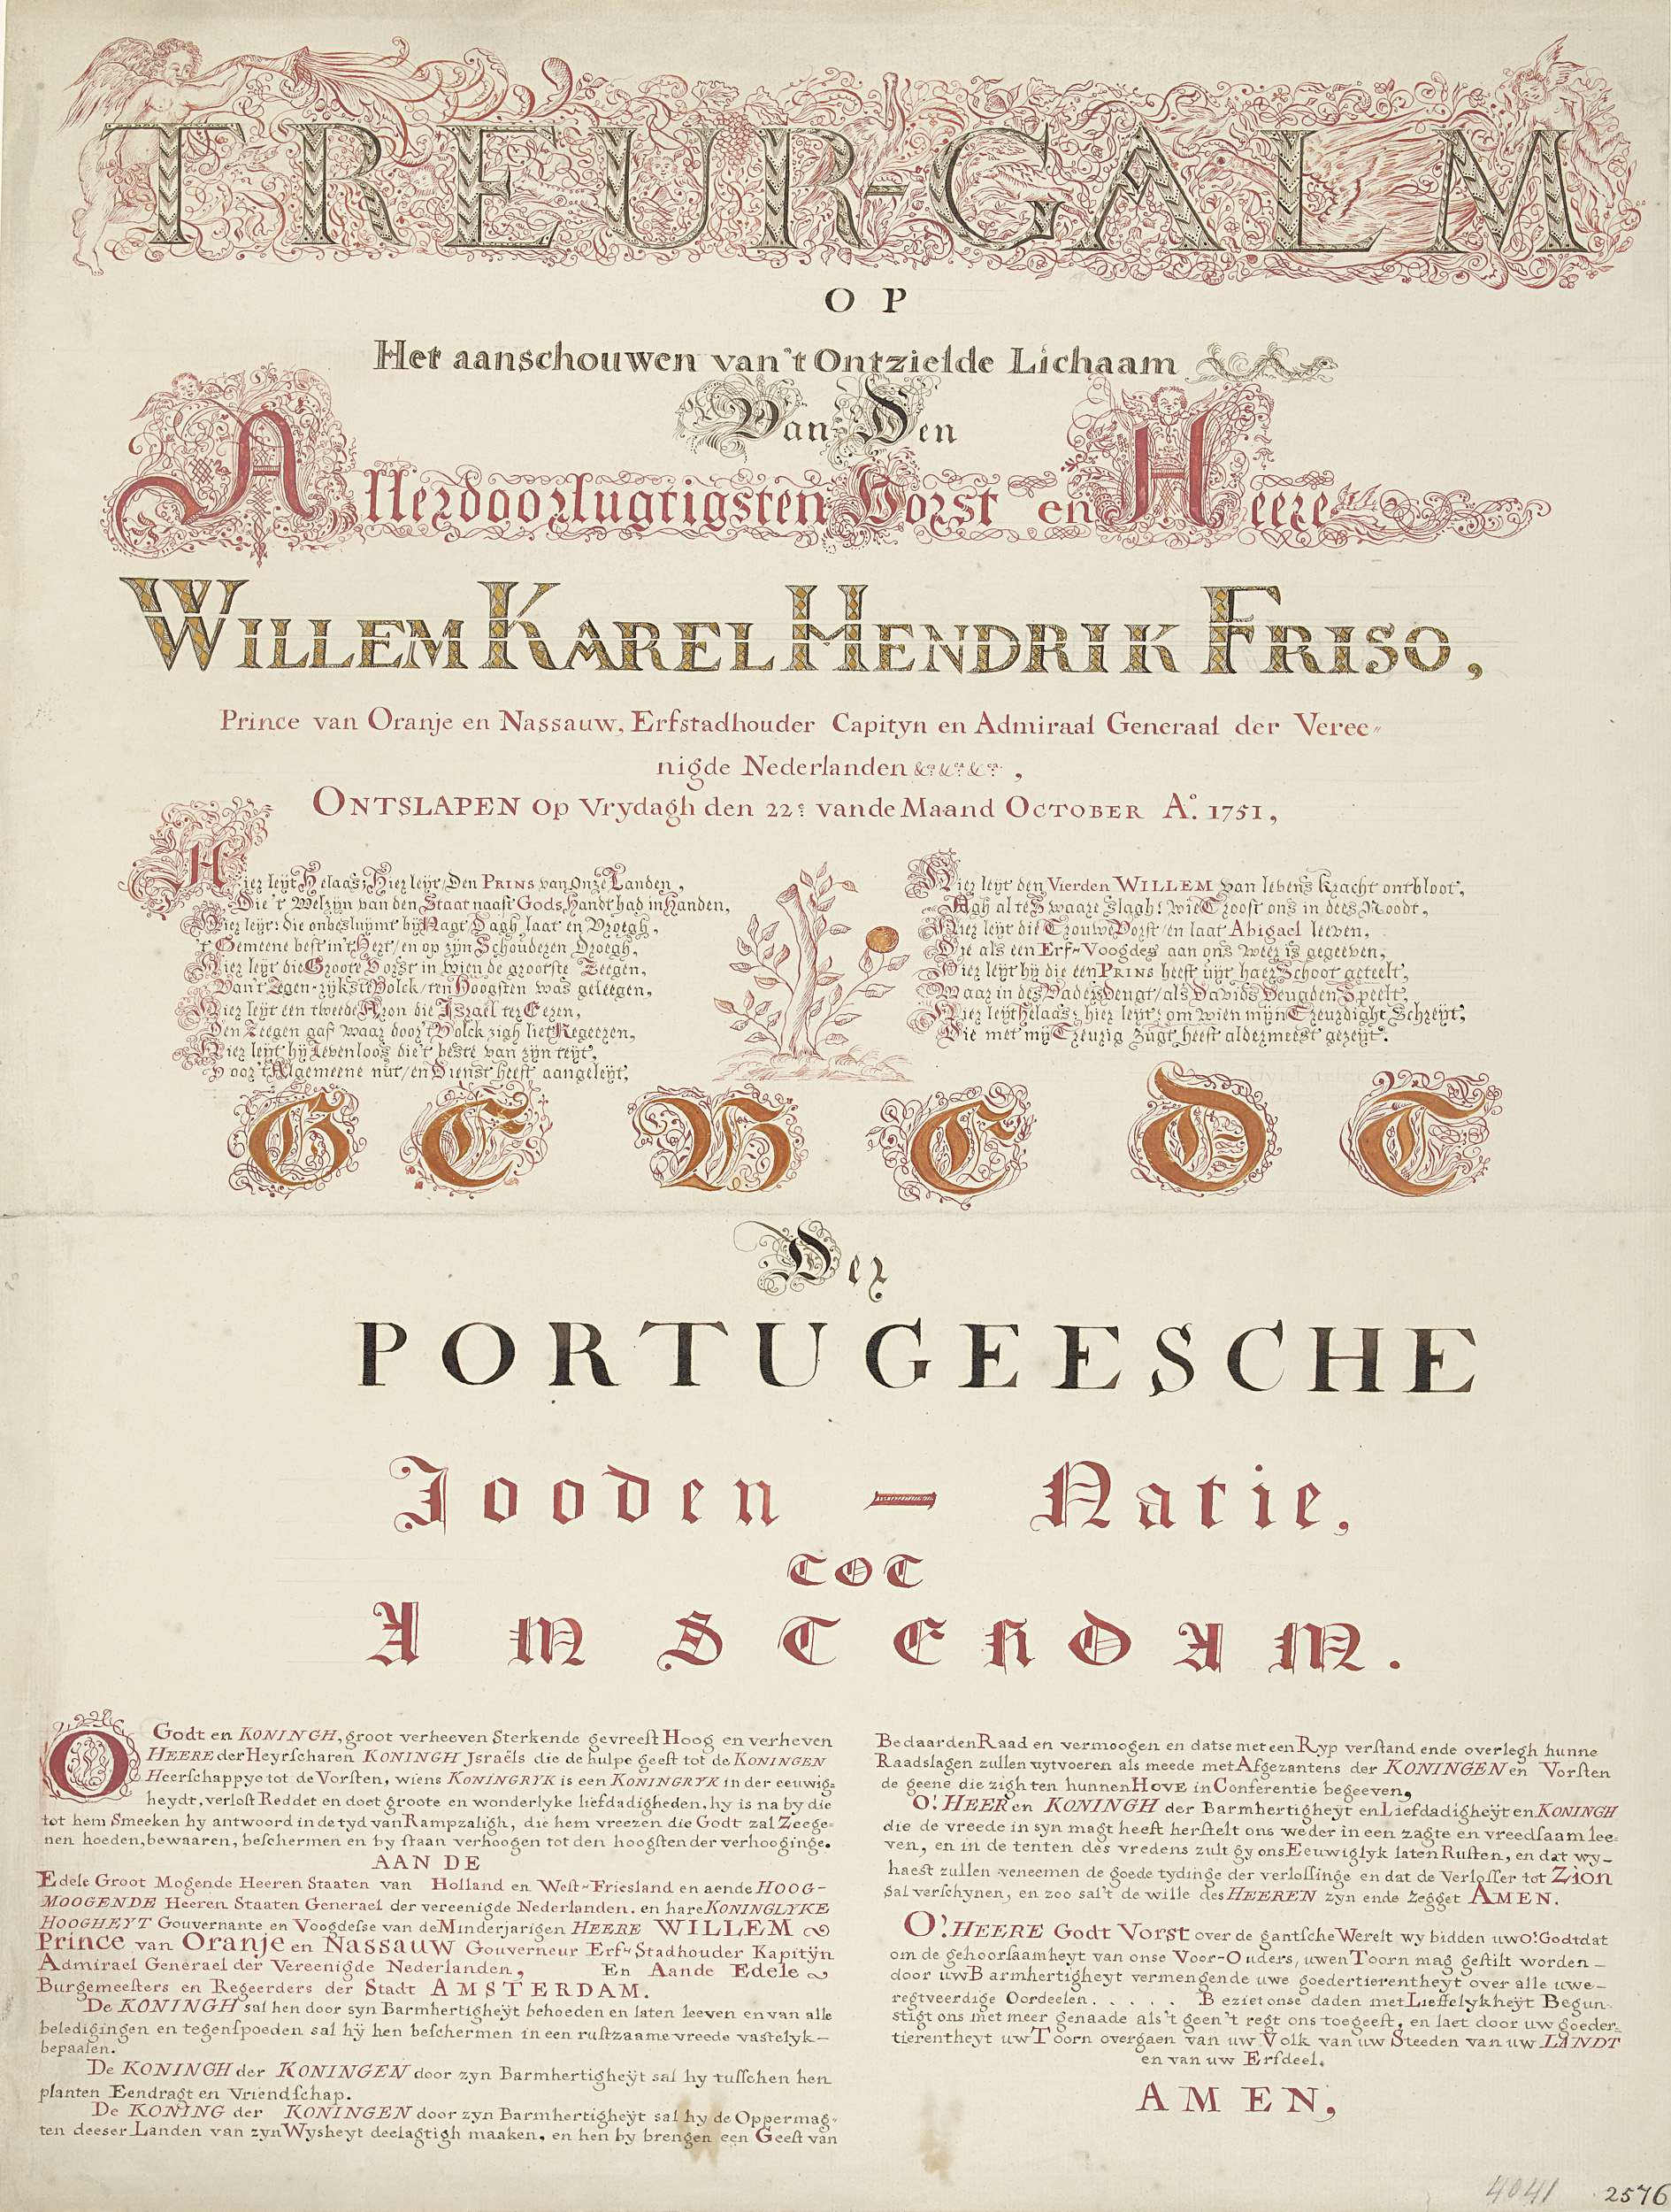 TREUR-GALM
OP
Het aanschouwen van 't Ontzielde Lichaam
Van Den
Allerdoorlugtigsten Vorst en Heere
WILLEM KAREL HENDRIK FRISO,
Prince van Oranje en Nassauw, Erfstadhouder Capityn en Admiraal Generaal der Veree"
nigde Nederlanden &ca. &ca. &ca. ,
ONTSLAPEN Op Vrydagh den 22e vande Maand OCTOBER Ao. 1751,
Hier leyt Helaas; Hier leyt, Den PRINS van Onze Landen,
Die 't Welzyn van den Staat naast Gods Handt had in Handen,
Hier leyt: die onbesluymt by Nagt / Dagh laat en Vroegh,
't Gemeene best in 't Hert / en op zyn Schouderen Droegh,
Hier leyt die Groote Vorst in wien de grootste Zeegen,
Van 't Zegen-rykste Volck / ten Hoogsten was geleegen,
Hier leyt een tweede Aron die Israël ter Eeren,
Den Zeegen gaf waar door 't Volck zigh liet Regeeren,
Hier leyt hy Levenloos die 't beste van zyn teyt,
Voor 't Algemeene nut / en Dienst heeft aangeleyt,
Hier leyt den Vierden WILLEM van levens kracht ontbloot,
Agh al te Swaare Slagh! wie Troost ons in dees Noodt,
Hier leyt die Trouwe Vorst / en laat Abigael leeven,
Die als een Erf-Voogdes aan ons weer is gegeeven,
Hier leyt hy die een PRINS heeft uyt haer Schoot geteelt,
Waar in des Vaders Deugt / als Davids Deugden Speelt,
Hier leyt Helaas; hier leyt; om wien myn Treurdight Schreyt,
Die met my Treurig zugt heeft aldermeest gezeyt.
GEBEDT
Der
PORTUGEESCHE
Jooden - Natie,
TOT
AMSTERDAM.
O Godt en KONINGH, groot verheeven Sterkende gevreest Hoog en verheven
HEERE der Heyrscharen KONINGH Jsraëls die de hulpe geeft tot de KONINGEN
Heerschappye tot de Vorsten, wiens KONINGRYK is een KONINGRYK in der eeuwig=
heydt, verlost Reddet en doet groote en wonderlyke liefdadigheden, hy is na by die
tot hem Smeeken hy antwoord in de tyd van Rampzaligh, die hem vreezen die Godt zal Zeege=
nen hoeden, bewaaren, beschermen en by staan verhoogen tot den hoogsten der verhooginge.
AAN DE
Edele Groot Mogende Heeren Staaten van Holland en West-Friesland en aende HOOG-
MOOGENDE Heeren Staaten Generael der vereenigde Nederlanden. en hare KONINGLYKE
HOOGHEYT Gouvernante en Voogdesse van de Minderjarigen HEERE WILLEM
Prince van Oranje en Nassauw Gouverneur Erf-Stadhouder Kapityn
Admirael Generael der Vereenigde Nederlanden, En Aande Edele
Burgemeesters en Regeerders der Stadt AMSTERDAM.
De KONINGH sal hen door syn Barmhertigheÿt behoeden en laten leeven en van alle
beledigingen en tegenspoeden sal hÿ hen beschermen in een rustzaame vreede vastelyk-
bepaalen.
De KONINGH der KONINGEN door zyn Barmhertigheÿt sal hy tusschen hen
planten Eendragt en Vriendschap.
De KONING der KONINGEN door zyn Barmhertigheÿt sal hy de Oppermag-
ten deeser Landen van zyn Wysheyt deelagtigh maaken, en hen by brengen een Geest van
Bedaarden Raad en vermoogen en datse met een Ryp verstand ende overlegh hunne
Raadslagen zullen uytvoeren als meede met Afgezantens der KONINGEN en Vorsten
de geene die zigh ten hunnen HOVE in Conferentie begeeven,
O! HEER en KONINGH der Barmhertigheÿt en Liefdadigheÿt en KONINGH
die de vreede in syn magt heeft herstelt ons weder in een zagte en vreedsaam lee=
ven, en in de tenten des vredens zult gy ons Eeuwiglyk laten Rusten, en dat wy-
haest zullen verneemen de goede tydinge der verlossinge en dat de Verlosser tot ZION
Sal verschynen, en zoo sal't de wille des HEEREN zyn ende Zegget AMEN.
O! HEERE Godt Vorst over de gantsche Werelt wy bidden uw O! Godt dat
om de gehoorsaamheyt van onse Voor-Ouders, uwen Toorn mag gestilt worden-
door uw Barmhertigheyt vermengende uwe goedertierentheyt over alle uwe-
regtveerdige Oordeelen. . . . . Beziet onse daden met Lieffelykheÿt Begun-
stigt ons met meer genaade als 't geen 't regt ons toegeeft, en laet door uw goeder=
tierentheyt uw Toorn overgaen van uw Volk van uw Steeden van uw LANDT
en van uw Erfdeel.
AMEN,
4041
2576